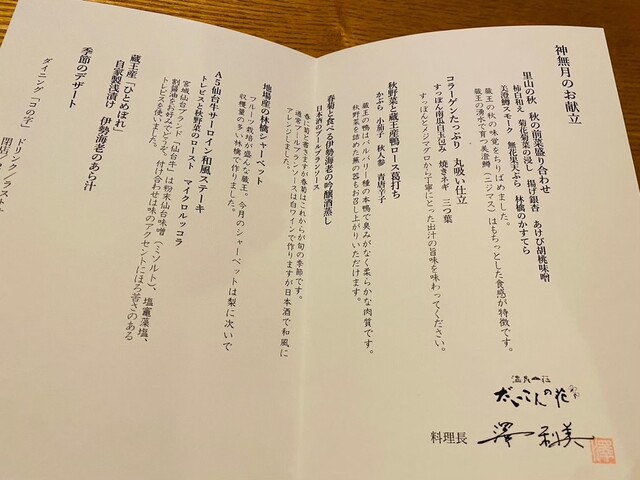 神無月のお献立
里山の秋 秋の前菜盛り合わせ
柿白和え 菊花菊菜の浸し 揚げ銀杏 あけび胡桃味噌
美澄鱒スモーク 無花果天ぷら 林檎のかすてら
蔵王の秋の味覚をちりばめました。
蔵王の湧水で育つ美澄鱒(ニジマス)はもちっとした食感が特徴です。
コラーゲンたっぷり 丸吸い仕立
すっぽん南瓜白玉包み 焼きネギ 三つ葉
すっぽんとメジマグロから丁寧にとった出汁の旨味を味わってください。
秋野菜と蔵王産鴨ロース葛打ち
かぶら 小茄子 秋人参 青唐辛子
蔵王の鴨はバルバリー種の本鴨で臭みがなく柔らかな肉質です。
秋野菜を詰めた蕪の器もお召し上がりいただけます。
春菊と食べる伊勢海老の吟醸酒蒸し
日本酒のブールブランソース
春に菊と書きますが春菊はこれからが旬の季節です。
通常ブールブランソースは白ワインで作りますが日本酒で和風に
アレンジしました。
地場産の林檎シャーベット
フルーツ栽培が盛んな蔵王。今月のシャーベットは梨に次いで
収穫量の多い林檎で作りました。
A5仙台牛サーロイン和風ステーキ
トレビスと秋野菜のロースト マイクロルッコラ
宮城仙台ブランド「仙台牛」は粉末仙台味噌(ミソルト)、塩竈藻塩、
割醤油をお好みでどうぞ。付け合わせは味のアクセントにほろ苦さのある
トレビスを使いました。
蔵王産「ひとめぼれ」
自家製浅漬け 伊勢海老のあら汁
季節のデザート
ダイニング「コの字」 ドリンク
温泉山荘
だいこんの花
料理長 澤